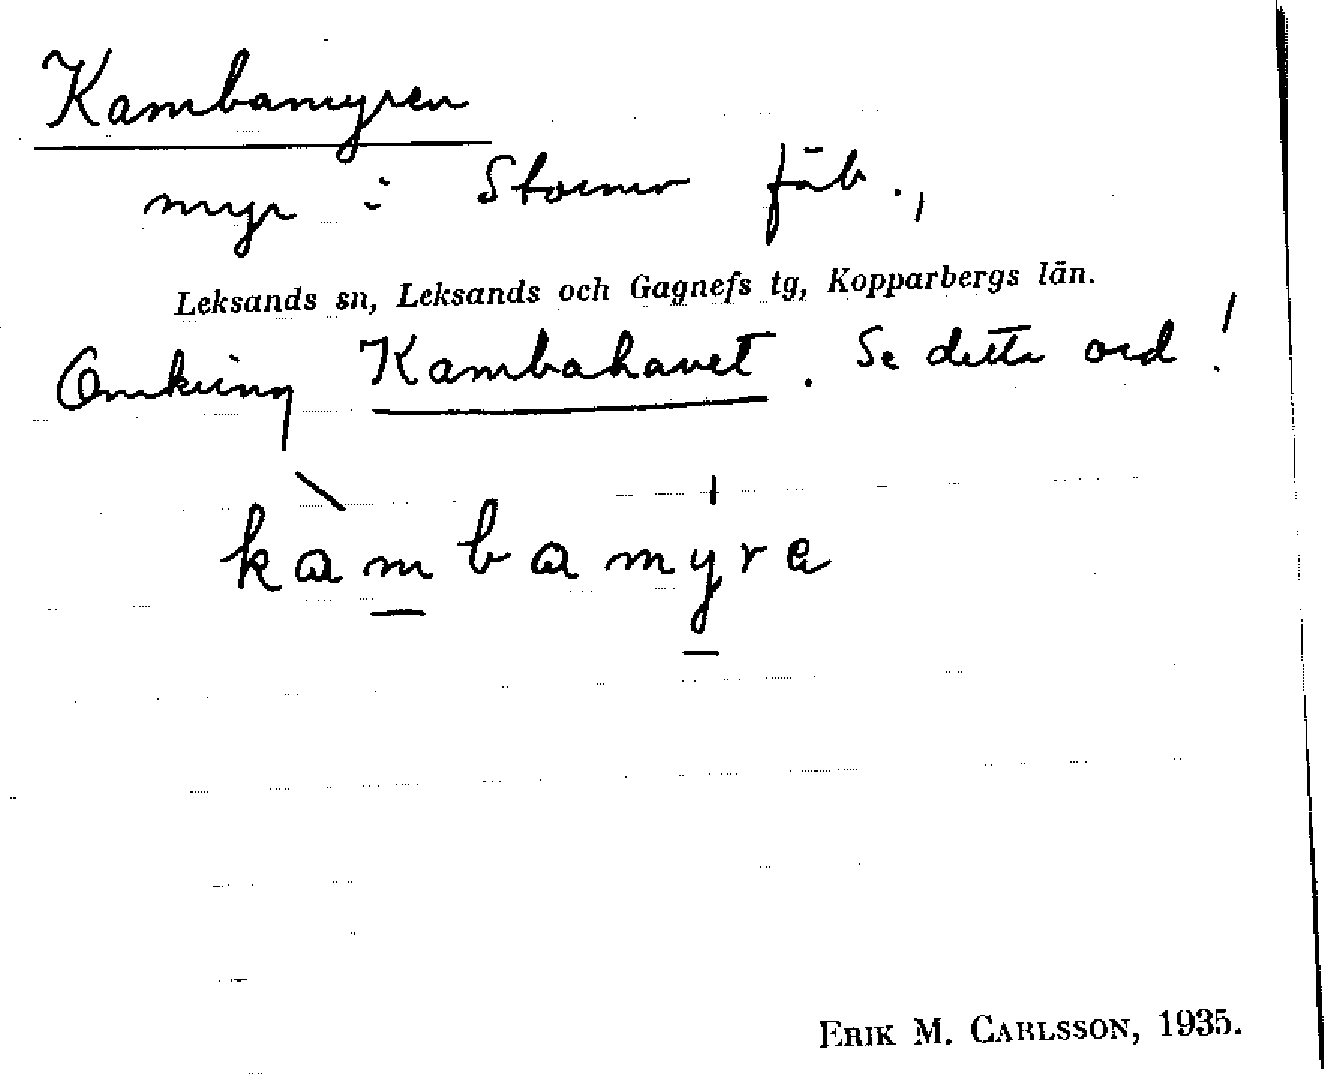 Kambamyren
myr i fäb.,
Leksands sn, Leksands och Gagnefs tg, Kopparbergs län.
Omkring Kambahavet. Se detta ord!
kambamyrę
ERIK M. CARLSSON, 1935.